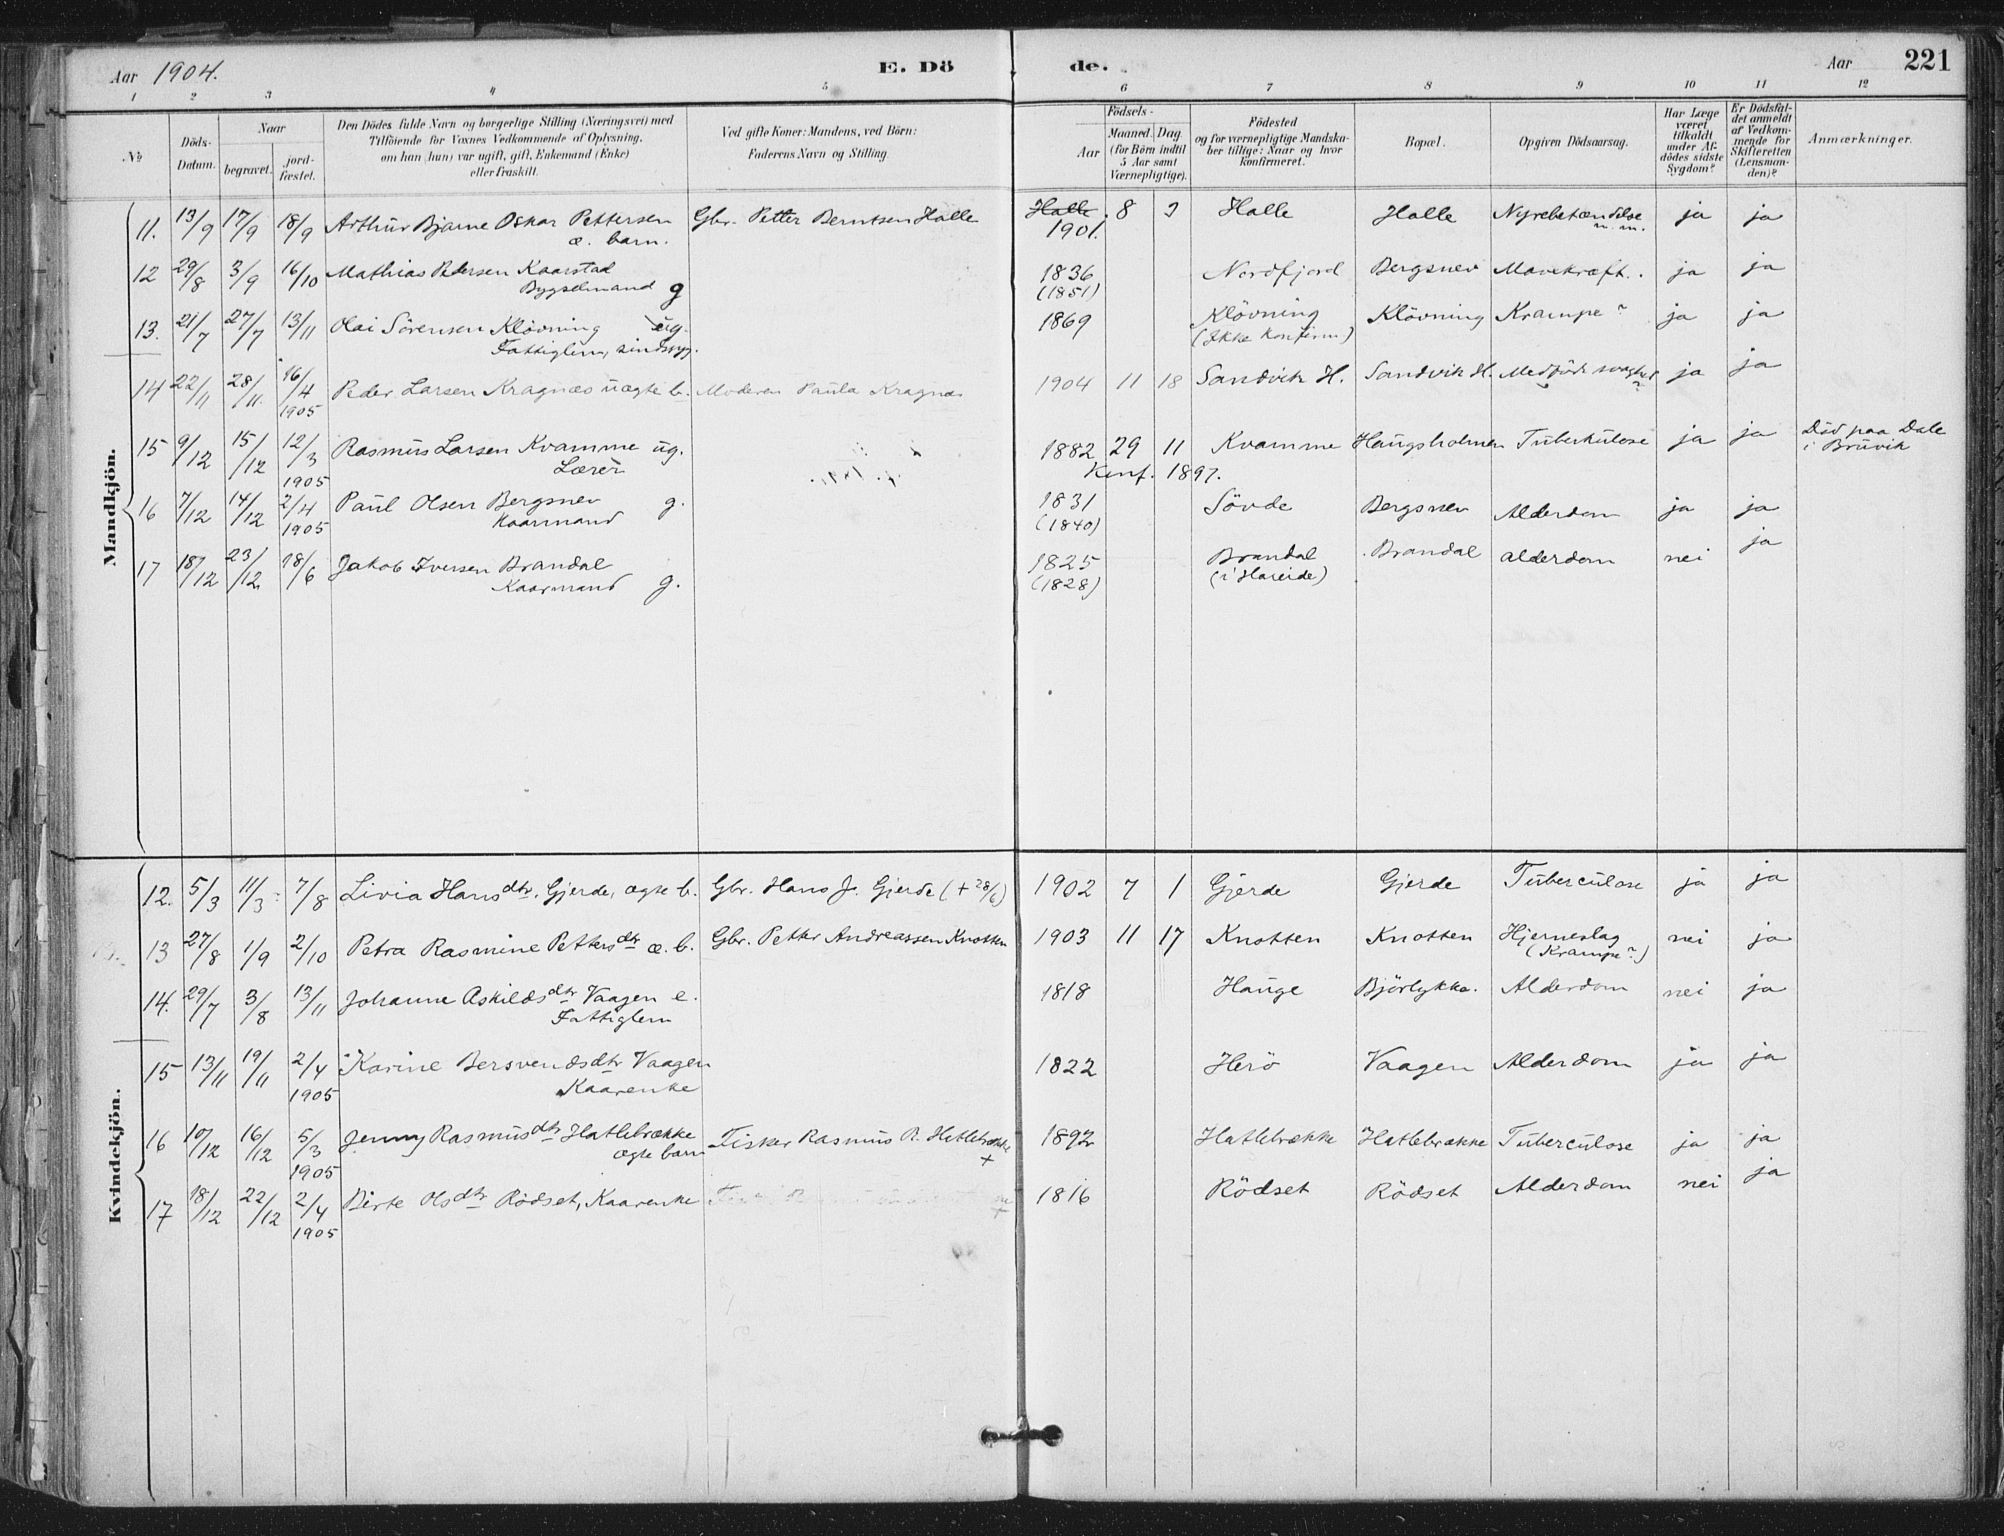 Aar 1904.
E. Dö
de.
Aar
221
1 2 3 4 5 6 7 8 9 10 11 12
No
Döds-
Datum.
Naar
begravet.
jord-
fæstet.
Den Dödes fulde Navn og borgerlige Stilling (Næringsvei) med
Tilföiende for Voxnes Vedkommende af Oplysning,
om han (hun) var ugift, gift, Enkemand (Enke)
eller fraskilt.
Ved gifte Koner: Mandens, ved Börn:
Faderens Navn og Stilling.
Födsels-
Aar
Maaned. Dag.
(for Börn indtil
5 Aar samt
Værnepligtige).
Födested
og for værnepligtige Mandska-
ber tillige: Naar og hvor
konfirmeret.
Bopæl.
Opgiven Dödsaarsag.
Har Læge
været
tilkaldt
under Af-
dödes sidste
Sygdom?
Er Dödsfal-
det anmeldt
af Vedkom-
mende for
Skifteretten
(Lensman-
den)?
Anmærkninger.
Mandkjön.
11. 13/9 17/9 18/9 Arthur Bjarne Oskar Pettersen Gbr. Petter Berntsen Halle Halle 8 3 Halle Halle Nyrebetændelse ja ja
æ. barn. 1901. m.m.
12 29/8 3/9 16/10 Mathias Pedersen Kaarstad 1836 Nordfjord Bergsnev Mavekræft. ja ja
Bygselmand g (1851)
13. 21/7 27/7 13/11 Olai Sörensen Klövning ug. 1869 Klövning Klövning Krampe? ja ja
Fattiglem, sindssyg. (Ikke konfirm)
14 22/11 28/11 16/4 Peder Larsen Kragnæs uægte b. Moderen Paula Kragnæs 1904 11 18 Sandvik H. Sandvik H. Medfödt ja ja
1905 ?
15 9/12 15/12 12/3 Rasmus Larsen Kvamme ug. 1882 29 11 Kvamme Haugsholmen Tuberkulose ja ja Död paa Dale
1905 Lærer Konf. 1897. i Bruvik
16 7/12 14/12 2/4 Paul Olsen Bergsnev g. 1831 Sövde Bergsnev Alderdom ja ja
1905 Kaarmand (1840)
17 18/12 23/12 18/6 Jakob Iversen Brandal 1825 Brandal Brandal Alderdom nei ja
Kaarmand g. (1828) (i Hareide)
Kvindekjön.
12. 5/3 11/3 7/8 Livia Hansdtr. Gjerde, ægte b. Gbr. Hans J. Gjerde (+ 28/6) 1902 7 1 Gjerde Gjerde Tuberculose ja ja
13 27/8 1/9 2/10 Petra Rasmine Pettersdtr æ. b. Gbr. Petter Andreassen Knotten 1903 11 17 Knotten Knotten Hjerneslag nei ja
(Krampe?)
14. 29/7 3/8 13/11 Johanne Askildsdtr Vaagen e. 1818 Hauge Björlykke. Alderdom nei ja
Fattiglem
15 13/11 19/11 2/4 Karine Bersvendsdtr Vaagen 1822 Herö Vaagen Alderdom ja ja
1905 Kaarenke
16 10/12 16/12 5/3 Jenny Rasmusdtr Hatlebrække Fisker Rasmus R. Hatlebrække 1892 Hatlebrække Hatlebrække Tuberculose ja ja
1905 ægte barn +
17 18/12 22/12 2/4 Birte Olsdtr Rödset, Kaarenke 1816 Rödset Rödset Alderdom nei ja
1905